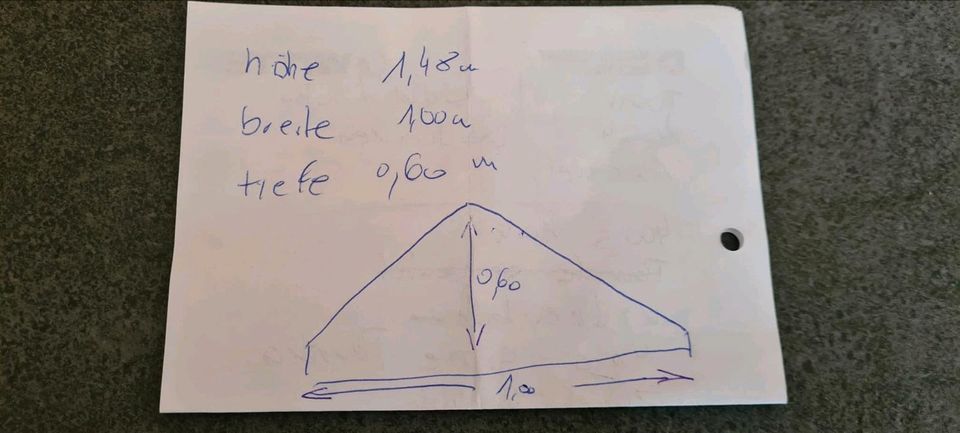 höhe 1,48m
breite 1,00m
tiefe 0,60 m
0,60
1,00